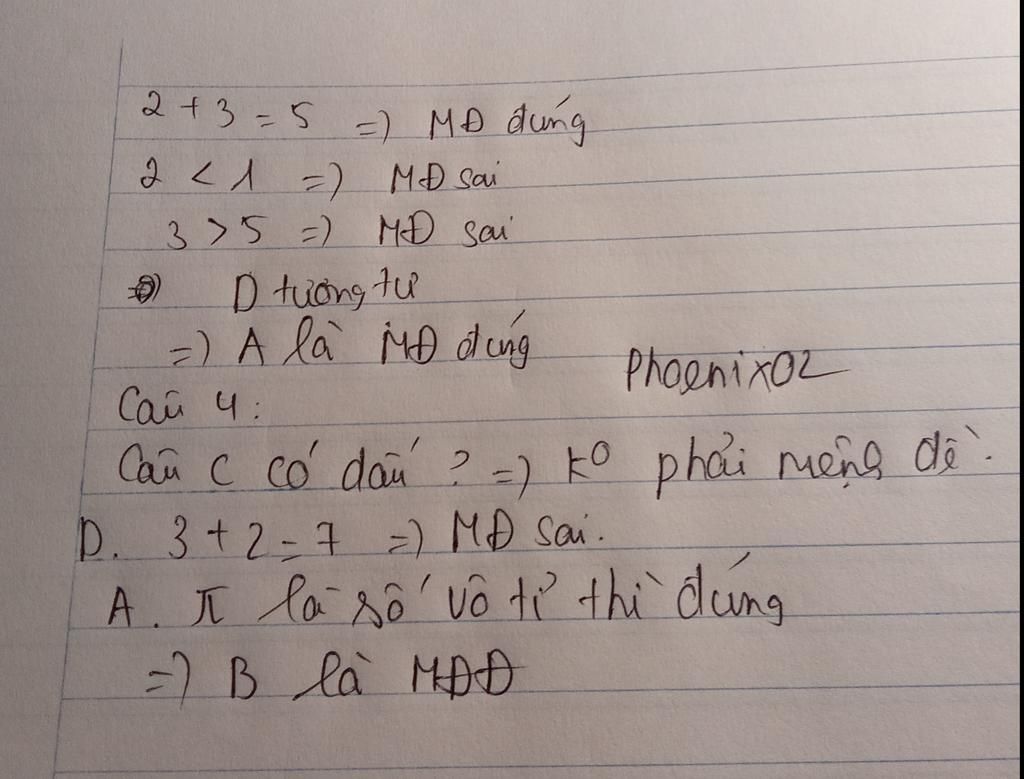 2 + 3 = 5 => MĐ đúng
2 < 1 => MĐ sai
3 > 5 => MĐ sai
D tương tự
=> A là MĐ đúng
Phoenix02
Câu 4:
Câu C có dấu ? => ko phải mệnh đề.
D. 3 + 2 = 7 => MĐ sai.
A. π là số vô tỉ thì đúng
=> B là MĐĐ